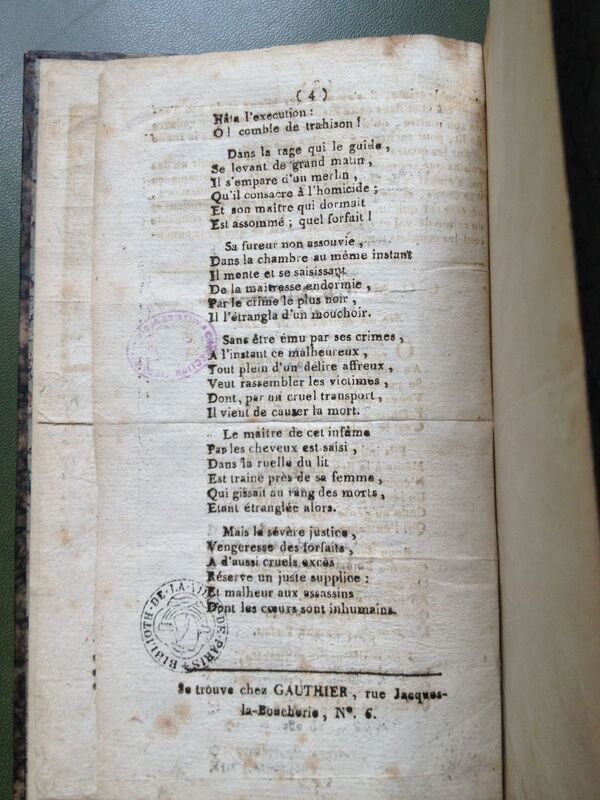 ( 4 )
Hâta l'execution :
O ! comble de trahison !
Dans la rage qui le guide ,
Se levant de grand matin ,
Il s'empare d'un merlin ,
Qu'il consacre à l'homicide ;
Et son maitre qui dormait
Est assommé ; quel forfait !
Sa fureur non assouvie ,
Dans la chambre au même instant
Il monte et se saisissant
De la maitresse endormie ,
Par le crime le plus noir ,
Il l'étrangla d'un mouchoir.
Sans être ému par ses crimes ,
A l'instant ce malheureux ,
Tout plein d'un délire affreux ,
Veut rassembler les victimes ,
Dont, par un cruel transport ,
Il vient de causer la mort.
Le maître de cet infâme
Par les cheveux est saisi ,
Dans la ruelle du lit
Est traîné près de sa femme ,
Qui gissait au rang des morts ,
Etant étranglée alors.
Mais la sévère justice ,
Vengeresse des forfaits ,
A d'aussi cruels excès
Réserve un juste supplice :
Et malheur aux assassins
Dont les cœurs sont inhumains.
BIBLIOTH. DE LA VILLE DE PARIS
Se trouve chez GAUTHIER , rue Jacques-
la-Boucherie , N°. 6.